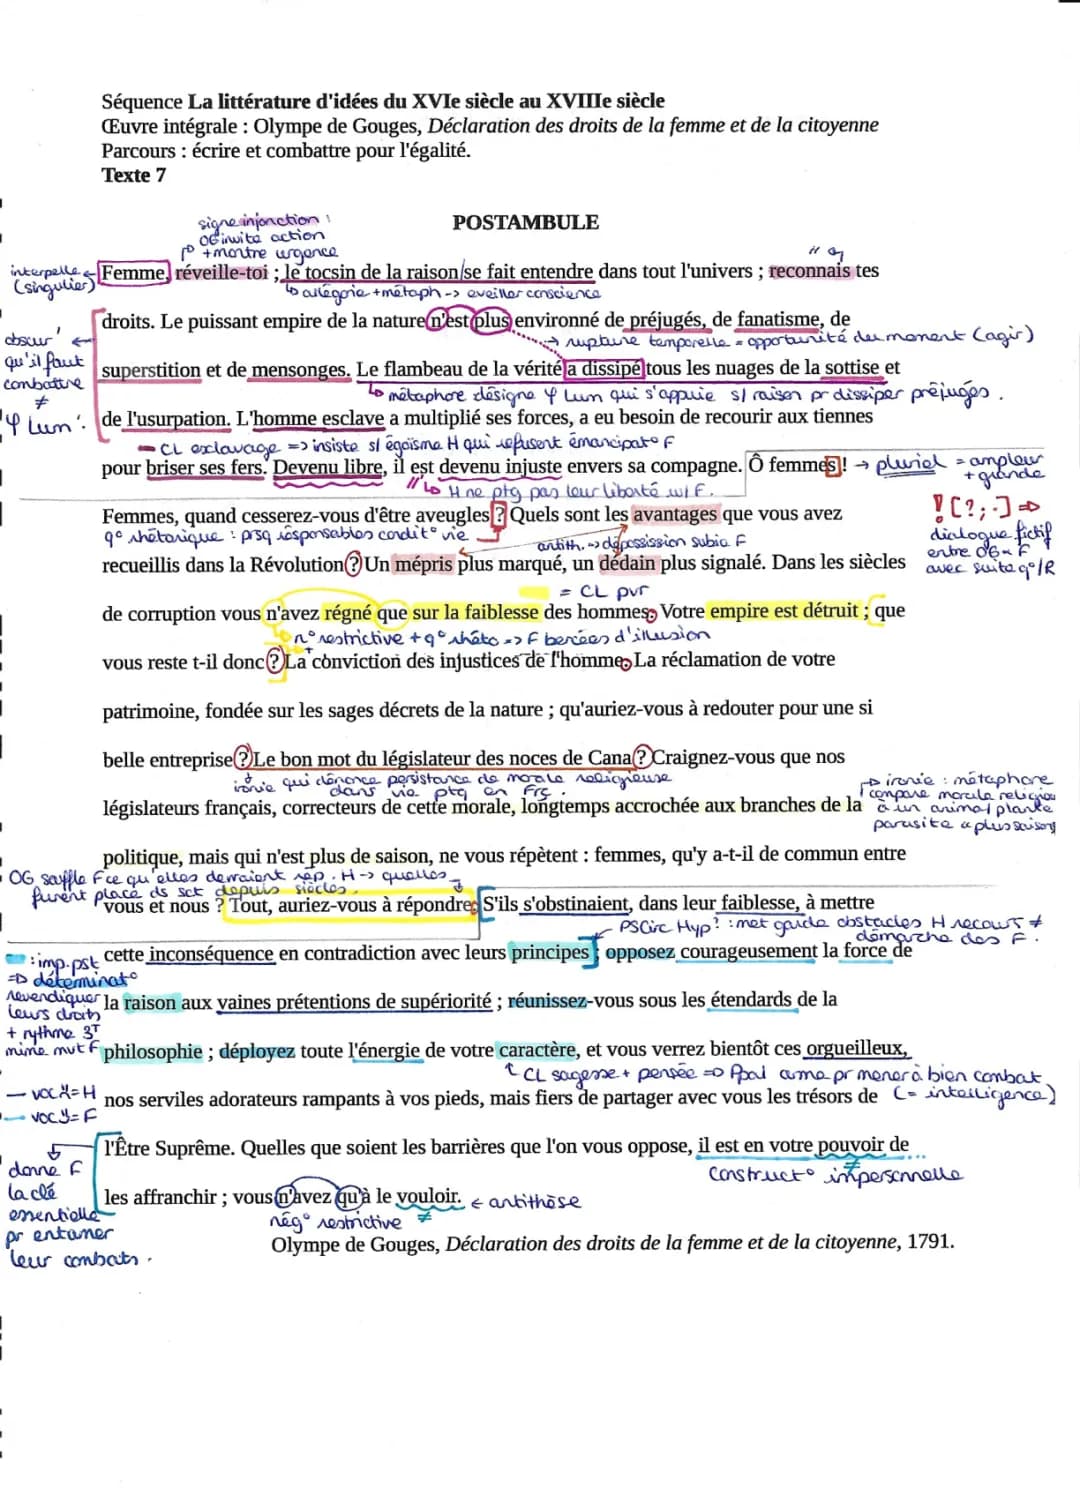 Séquence La littérature d'idées du XVIe siècle au XVIIIe siècle
Œuvre intégrale : Olympe de Gouges, Déclaration des droits de la femme et de la citoyenne
Parcours : écrire et combattre pour l'égalité.
Texte 7
POSTAMBULE
signe injonction :
OG invite action
+ montre urgence
interpelle
(singulier)
Femme, réveille-toi ; le tocsin de la raison se fait entendre dans tout l'univers ; reconnais tes
↳ allégorie + métaph -> eveiller conscience
droits. Le puissant empire de la nature n'est plus environné de préjugés, de fanatisme, de
→ rupture temporelle = opportunité du moment (agir)
obscur'
qu'il faut
combattre
≠
φ Lum'.
superstition et de mensonges. Le flambeau de la vérité a dissipé tous les nuages de la sottise et
↳ métaphore désigne φ Lum qui s'appuie s/ raison pr dissiper préjugés.
de l'usurpation. L'homme esclave a multiplié ses forces, a eu besoin de recourir aux tiennes
CL esclavage => insiste s/ égoïsme H qui refusent émancipat° F
pour briser ses fers. Devenu libre, il est devenu injuste envers sa compagne. Ô femmes ! → pluriel = ampleur
+ grande
↳ H ne ptg pas leur liberté w/ F.
Femmes, quand cesserez-vous d'être aveugles ? Quels sont les avantages que vous avez
q° rhétorique : prsq résponsables condit° vie
antith. -> dépossission subie F
! [?;.] ⇒
dialogue fictif
entre OG & F
avec suite q°/R
recueillis dans la Révolution ? Un mépris plus marqué, un dédain plus signalé. Dans les siècles
= CL pvr
de corruption vous n'avez régné que sur la faiblesse des hommes. Votre empire est détruit ; que
n° restrictive + q° rhéto => F bercées d'illusion
vous reste t-il donc ? La conviction des injustices de l'homme. La réclamation de votre
patrimoine, fondée sur les sages décrets de la nature ; qu'auriez-vous à redouter pour une si
belle entreprise ? Le bon mot du législateur des noces de Cana ? Craignez-vous que nos
ironie qui dénonce persistance de morale religieuse
dans vie ptq en Frç.
législateurs français, correcteurs de cette morale, longtemps accrochée aux branches de la
ironie : métaphore
compare morale religion
à un animal/plante
parasite "plus saison"
politique, mais qui n'est plus de saison, ne vous répètent : femmes, qu'y a-t-il de commun entre
OG souffle F ce qu'elles devraient rép. H -> quelles
furent place ds sct depuis siècles.
vous et nous ? Tout, auriez-vous à répondre. S'ils s'obstinaient, dans leur faiblesse, à mettre
PSCirc Hyp : met garde obstacles H recours ≠
démarche des F.
cette inconséquence en contradiction avec leurs principes ; opposez courageusement la force de
: imp. pst
=> déterminat°
revendiquer
leurs droits
+ rythme 3T
mime mvt F
la raison aux vaines prétentions de supériorité ; réunissez-vous sous les étendards de la
philosophie ; déployez toute l'énergie de votre caractère, et vous verrez bientôt ces orgueilleux,
↑ CL sagesse + pensée => Ppal arme pr mener à bien combat
(= intelligence)
— voc X = H
— voc Y = F
nos serviles adorateurs rampants à vos pieds, mais fiers de partager avec vous les trésors de
l'Être Suprême. Quelles que soient les barrières que l'on vous oppose, il est en votre pouvoir de
construct° impersonnelle
donne F
la clé
essentielle
pr entamer
leur combats.
les affranchir ; vous n'avez qu'à le vouloir. ← antithèse
nég° restrictive ≠
Olympe de Gouges, Déclaration des droits de la femme et de la citoyenne, 1791.